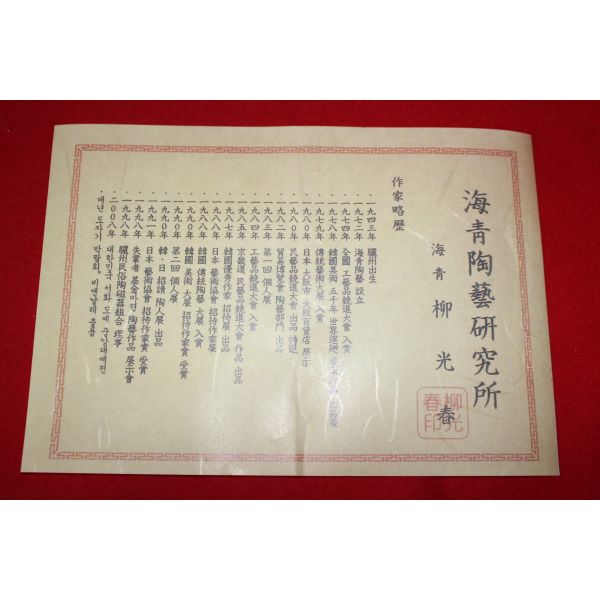 海青陶藝硏究所
海青 柳光春
柳光
春印
作家略歷
· 一九四三年 驪州出生
· 一九七二年 海青陶藝 設立
· 一九七四年 全國 工藝品競進大會 入賞
· 一九七八年 韓國美術 五千年 世界巡廻
· 一九七九年 傳統藝術大展 入賞
· 一九八〇年 日本 大阪市 大阪百貨店 展示
· 一九八〇年 民藝品競進大會 出品 特選
· 一九八二年 貿易博覽會 陶藝部門 出品
· 一九八三年 第一回 個人展
· 一九八四年 工藝品競進大會 入賞
· 一九八五年 京畿道 民藝品競進大會 作品 出品
· 一九八七年 韓國優秀作家 招待展 出品
· 一九八八年 日本 藝術協會 招待作家展
· 一九八八年 韓國 傳統陶藝 大展 入賞
· 一九九〇年 韓國 美術 大展 招待作家賞 受賞
· 一九九〇年 第二回 個人展
· 一九九〇年 韓·日 招請 陶人展 出品
· 一九九一年 日本 藝術協會 招待作家賞 受賞
· 一九九八年 失業者 基金마련 陶藝作品 展示會
· 一九九八年 驪州民俗陶磁器組合 理事
· 二〇〇八年 대한민국 서화 도예 중앙대전
· 매년 도자기 박람회, 비엔날레 출품